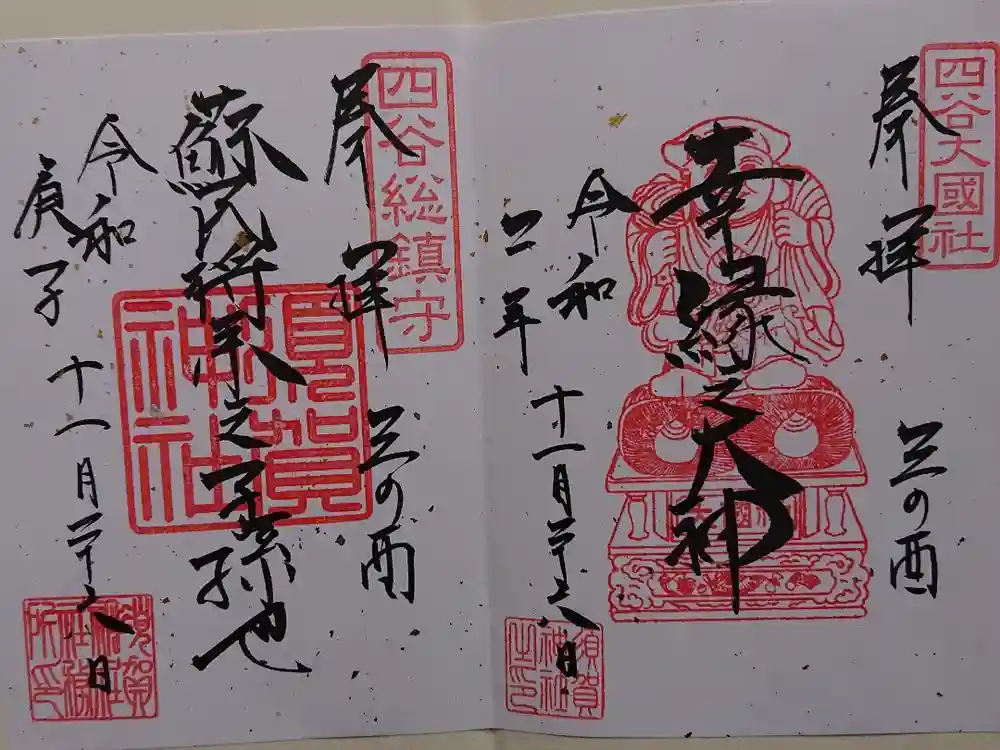 四谷大國社
奉拝 三の酉
幸縁之大神
令和二年 十一月二十六日
須賀神社之印
四谷総鎮守
奉拝 三の酉
蘇民将来之子孫也
須賀神社
令和庚子 十一月二十六日